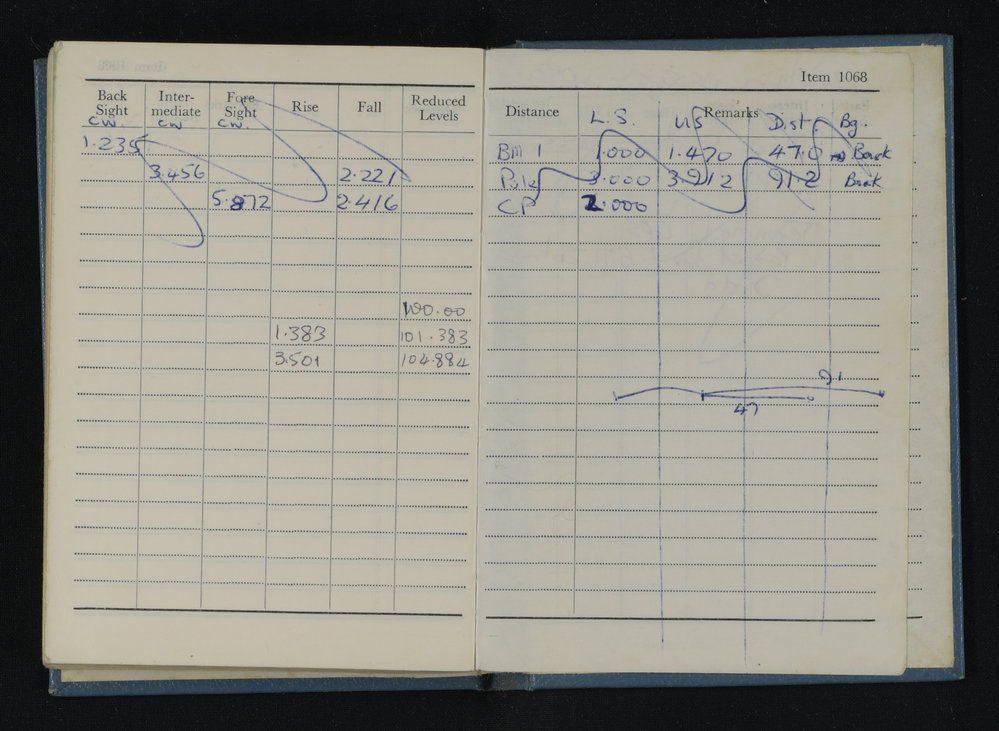 Back Sight Inter-mediate Fore Sight Rise Fall Reduced Levels
CW. CW CW.
1.235
3.456 2.221
5.872 2.416
100.00
1.383 101.383
3.501 104.884
Item 1068
Distance Remarks
L.S. U.S Dist Bg.
BM 1 1.000 1.470 47.0
3.000 3.912 91.2
CP 2.000
91
47